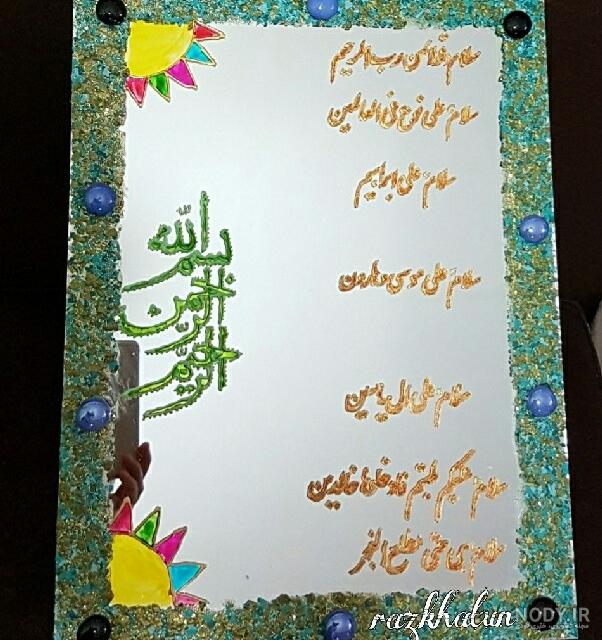 سلام قولا من رب الرحیم
سلام علی نوح فی العالمین
سلام علی ابراهیم
سلام علی موسی و هارون
سلام علی ال یاسین
سلام علیکم طبتم فادخلوها خالدین
سلام هی حتی مطلع الفجر
بسم الله
الرحمن
الرحیم
razkhatun
NODY.IR